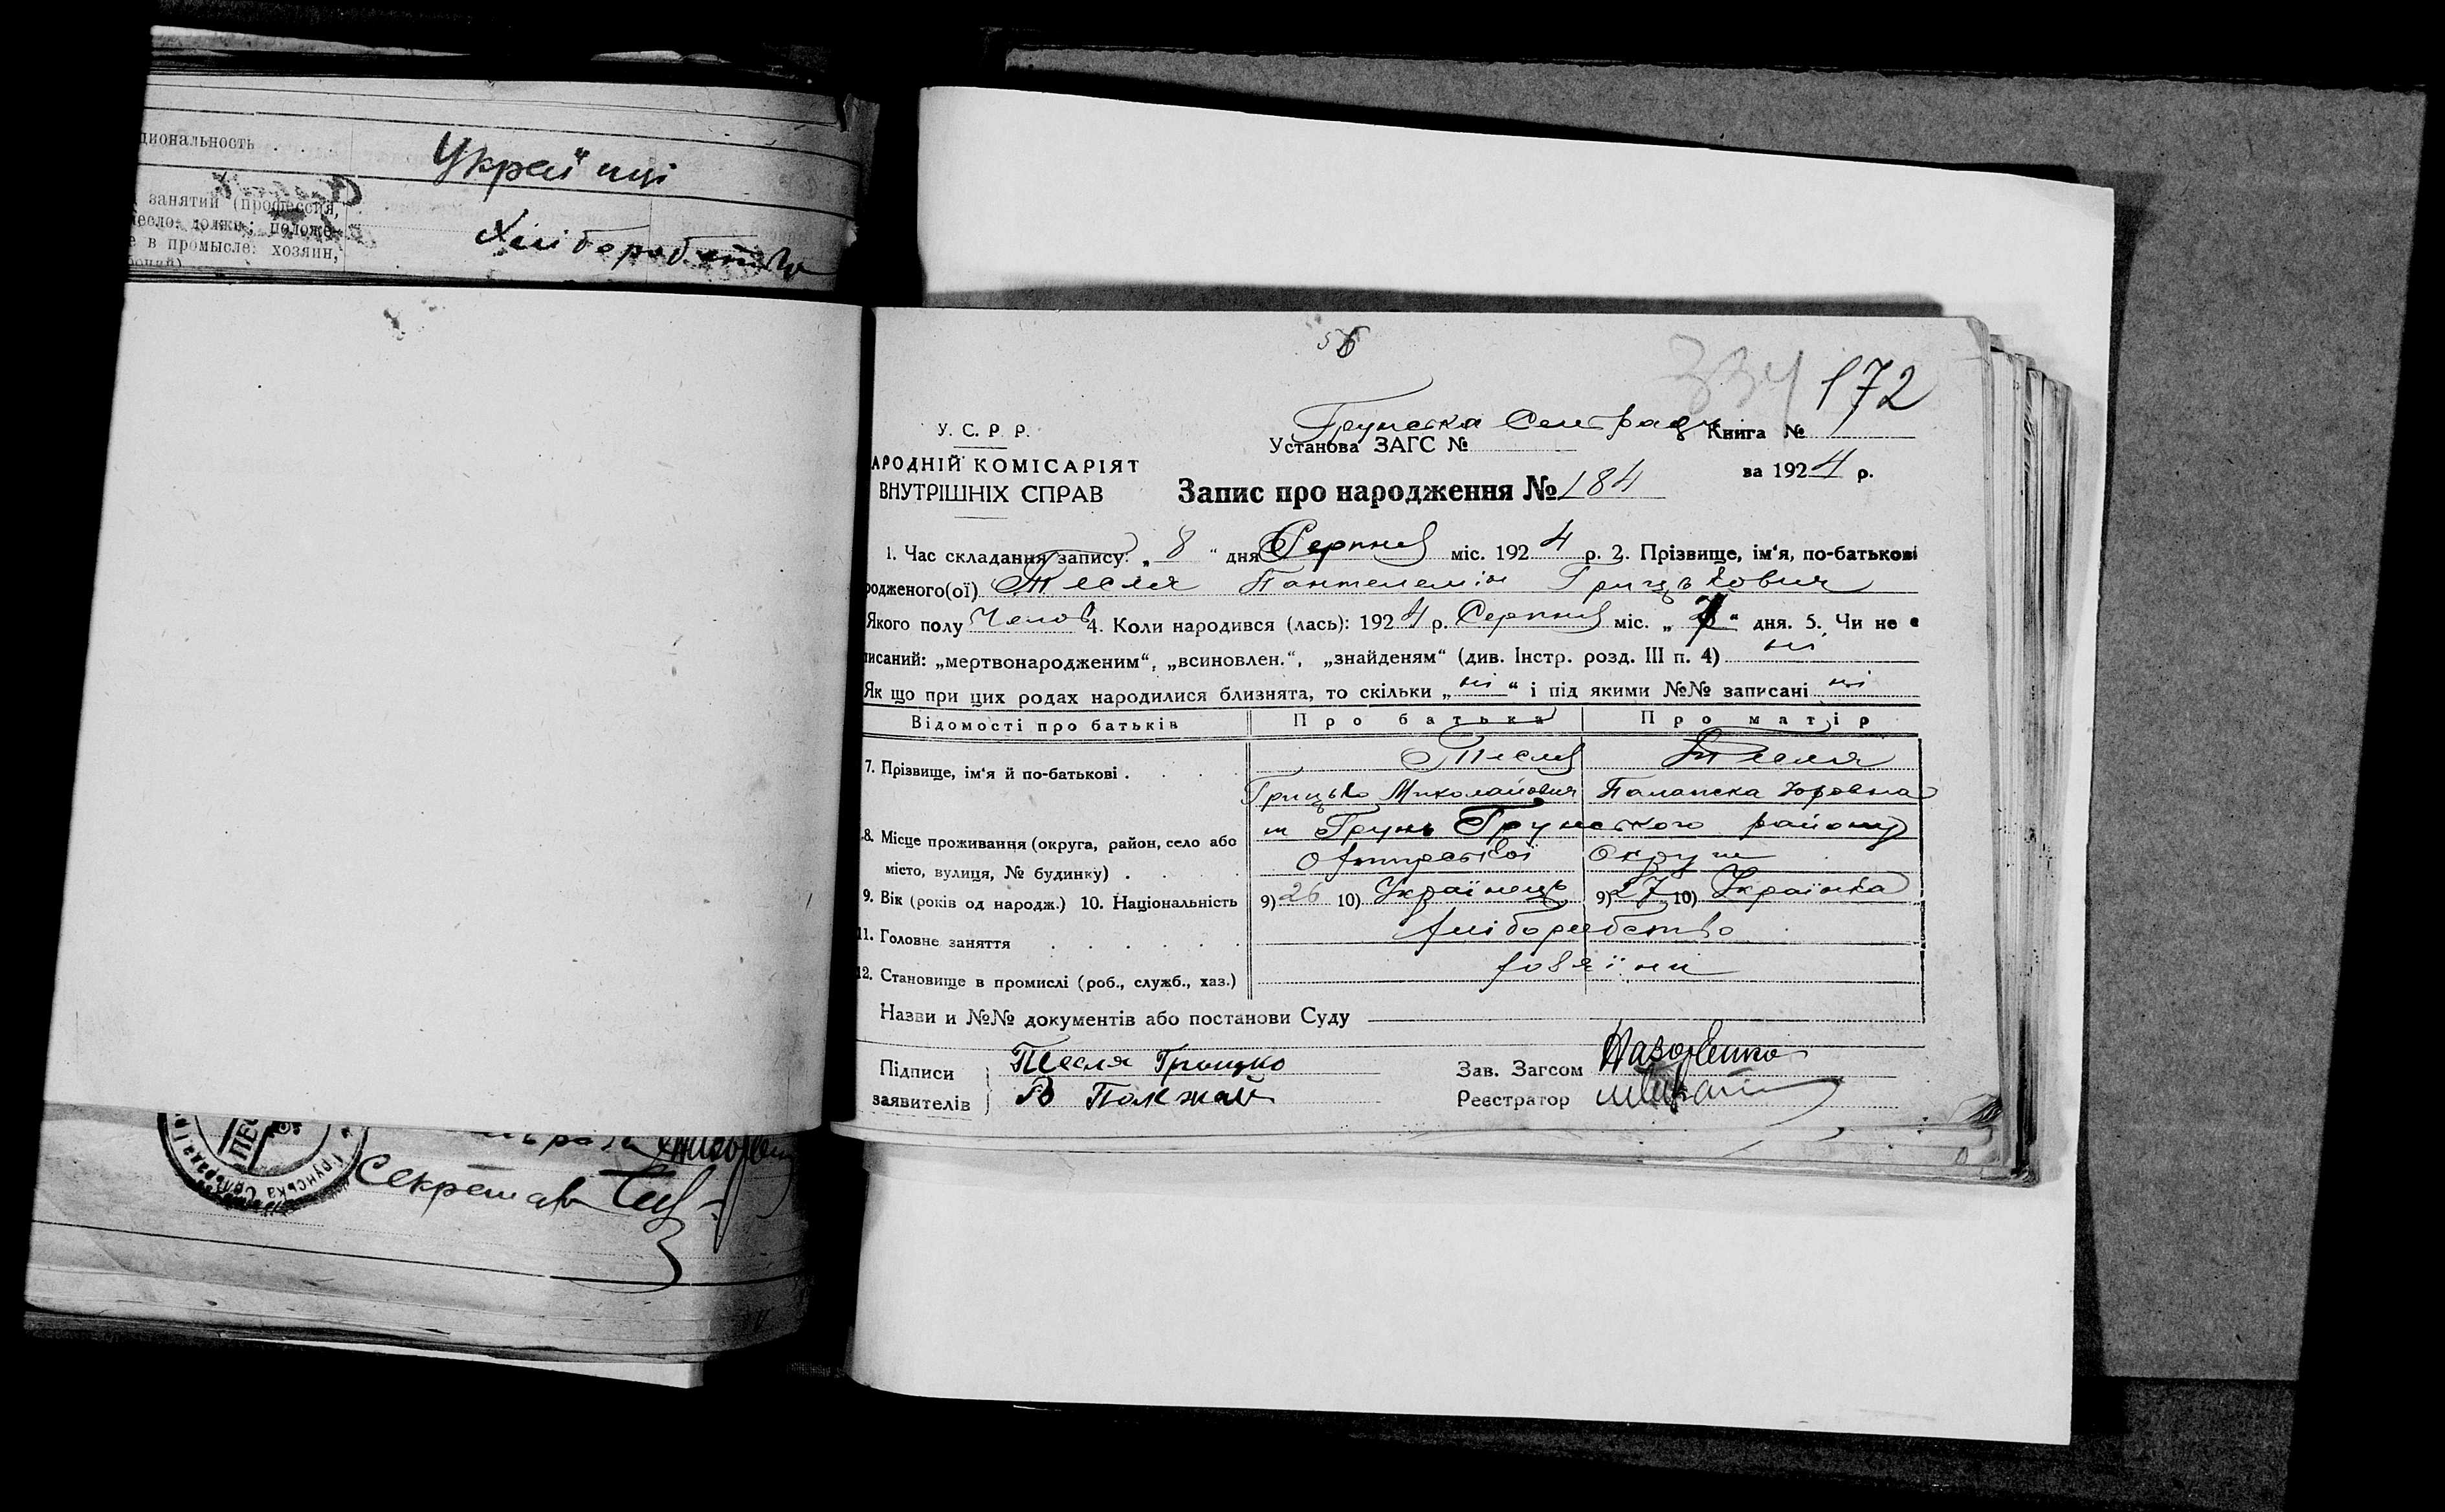 циональность . . .
Украї́нці
занятий (профессия,
ремесло, должн.; положе-
е в промысле: хозяин,
Хліборобство
56
334 172
У. С. Р. Р.
Грунська Сельрада
Установа ЗАГС №
Книга №
АРОДНІЙ КОМІСАРІЯТ
ВНУТРІШНІХ СПРАВ
за 1924 р.
Запис про народження № 184
1. Час складання запису: „ 8 “ дня Серпня міс. 1924 р. 2. Прізвище, ім‘я, по-батькові
родженого(ої) Тесля Пантелемін Грицькович
Якого полу Челов 4. Коли народився (лась): 1924 р. Серпня міс. „ 7 “ дня. 5. Чи не є
писаний: „мертвонародженим“, „всиновлен.“, „знайденям“ (див. Інстр. розд. III п. 4) ні
Як що при цих родах народилися близнята, то скільки „ ні “ і під якими №№ записані ні
Відомості про батьків Про батька Про матір
7. Прізвище, ім‘я й по-батькові . Тесля Тесля
Грицько Миколайович Палажка Юровна
8. Місце проживання (округа, район, село або м Грунь Грунського району
місто, вулиця, № будинку) . Охтирської Округи
9. Вік (років од народж.) 10. Національність 9) 26 10) Українець 9) 27 10) Українка
11. Головне заняття хліборобство
12. Становище в промислі (роб., служб., хаз.) хозяїни
Назви и №№ документів або постанови Суду
Підписи Тесля Грицко Зав. Загсом
заявителів Реєстратор
Грунська Сель
Секретар